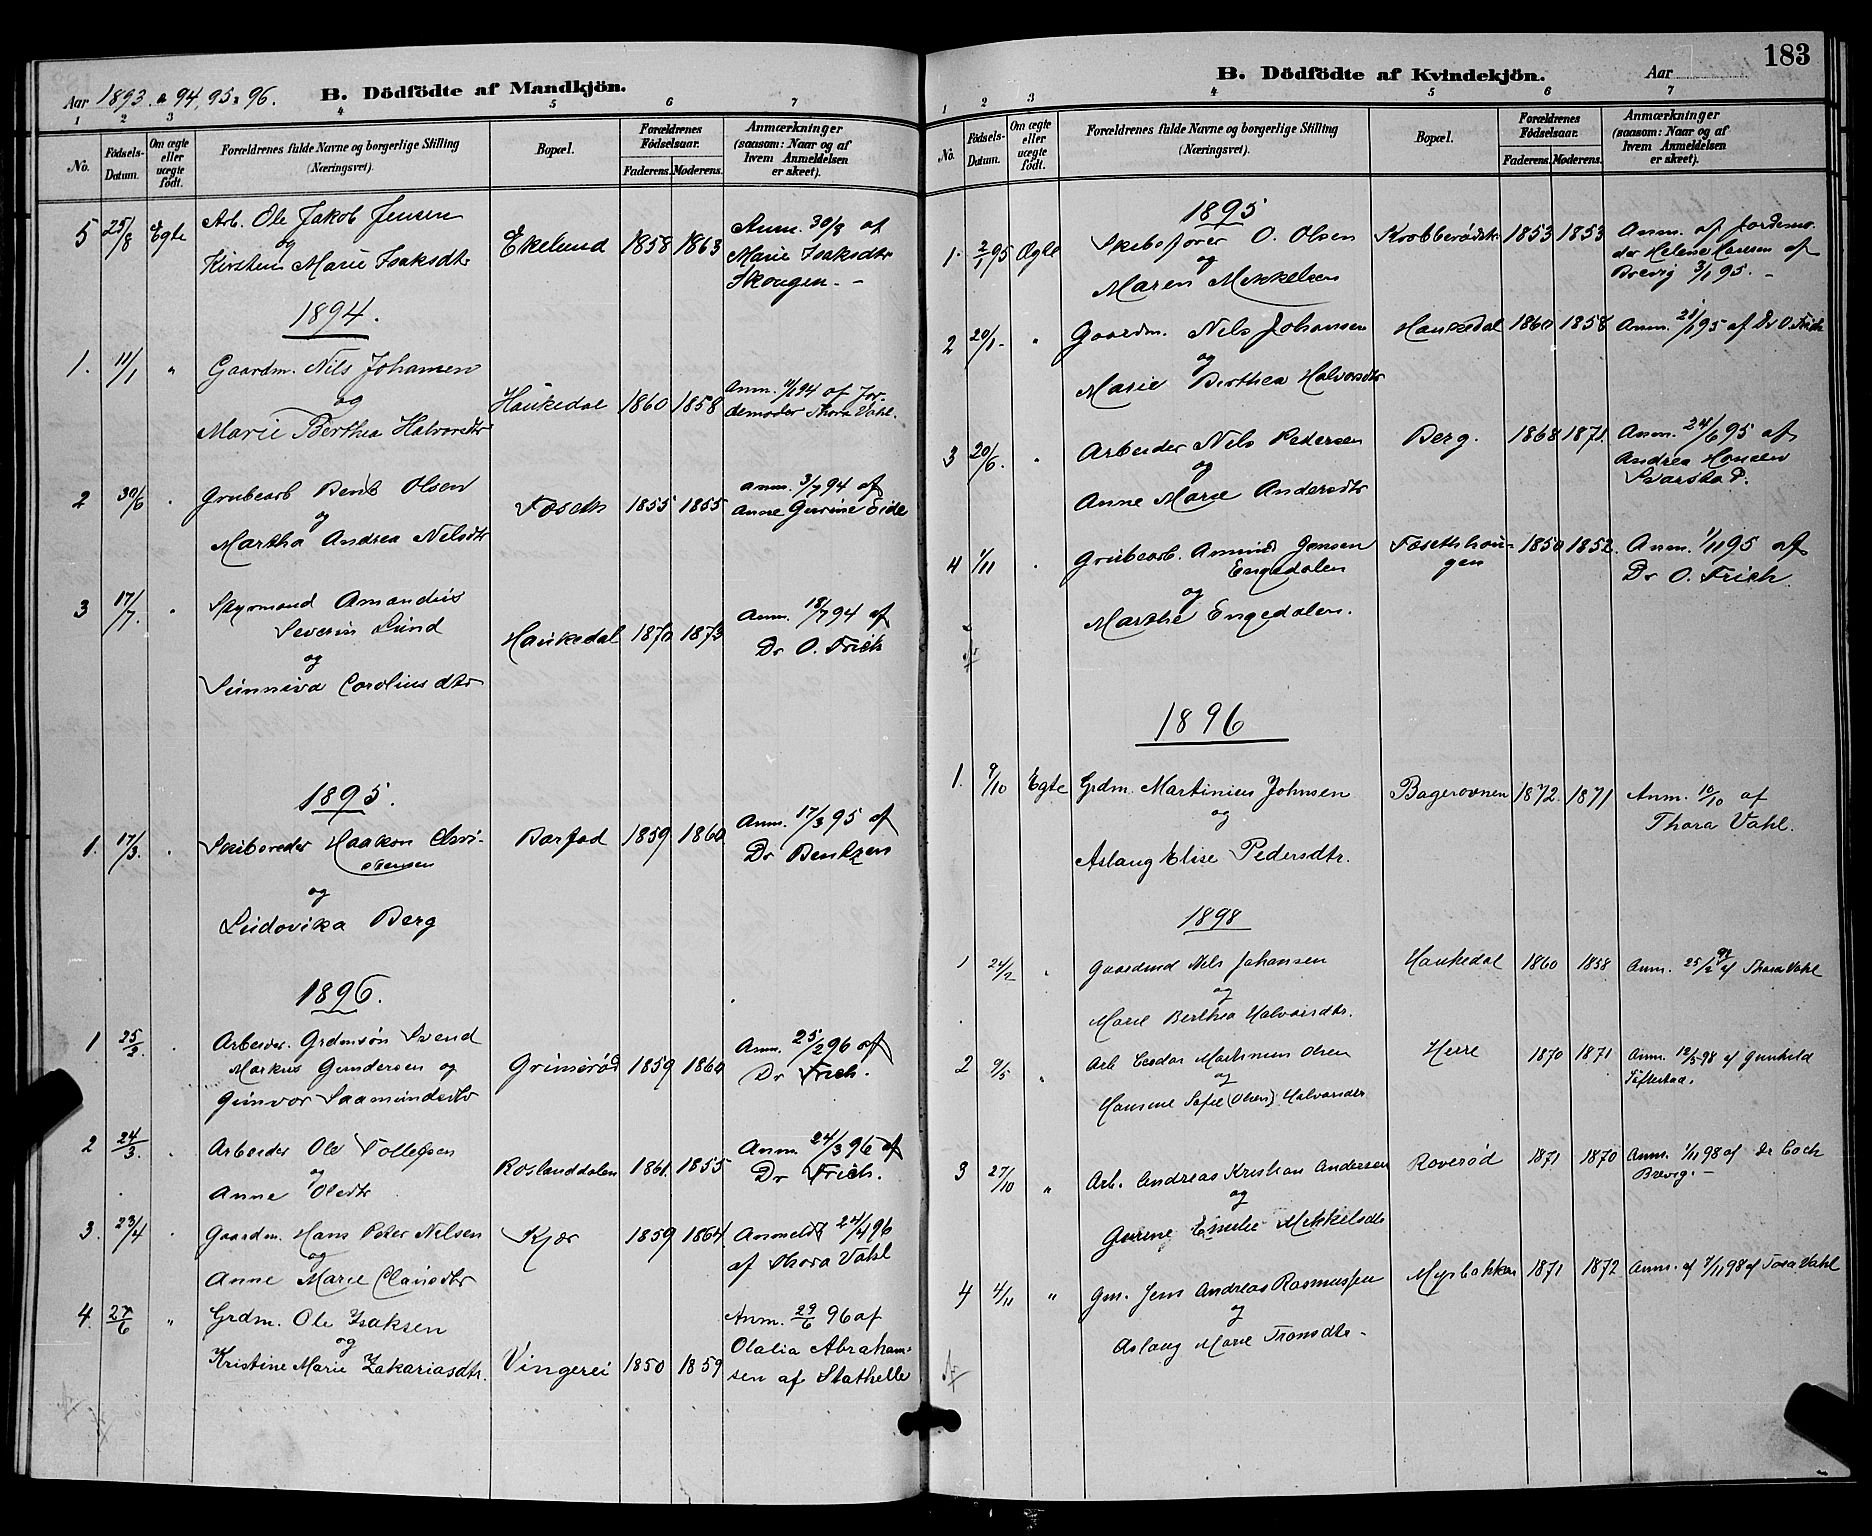 183
Aar 1893 a 94, 95 a 96.
B. Dödfödte af Mandkjön.
1 2 3 4 5 6 7
No.
Födsels-Datum.
Om ægte eller uægte födt.
Forældrenes fulde Navne og borgerlige Stilling
(Næringsvei).
Bopæl.
Forældrenes Födselsaar.
Faderens. Moderens.
Anmærkninger
(saasom: Naar og af
hvem Anmeldelsen
er skeet).
5 25/8 Egte Arb. Ole Jakob Jensen
og
Kirsten Marie Isaksdtr
Ekelund 1858 1863
Anm. 30/8 af
Marie Isaksdtr
Skougen. -
1894.
1. 11/1 " Gaardm. Nils Johansen
og
Marie Berthea Halvorsdtr
Haukedal 1860 1858
Anm. 11/1 94 af Jor-
demoder Thora Vahl.
2 30/6 " Grubearb Bent Olsen
og
Martha Andrea Nilsdtr
Foseth 1855 1855
Anm. 3/7 94 af
Anne Gurine Eide
3 17/7. " Styrmand Amandus
Severin Lund
og
Sunniva Caroliusdtr
Haukedal 1870 1873
Anm. 18/7 94 af
Dr O. Frich
1895.
1. 17/3. " Skibsreder Haakon Chri-
stensen
og
Ludovika Berg
Barfod 1859 1860
Anm. 17/3 95 af
Dr Bentzen
1896.
1 25/2. " Arbeider. Grdmsøn Svend
Markus Gundersen og
Gunvor Saamundsdtr
Grimsrød 1859 1860
Anm. 25/2 96 af
Dr Frich.
2 24/3. " Arbeider Ole Tollefsen
og
Anne Olsdtr
Roslanddalen 1861. 1855
Anm. 24/3 96 af
Dr Frich.
3. 23/4 " Gaardm. Hans Peter Nilsen
og
Anne Marie Clausdtr
Kjær 1859 1864.
Anmeldt 24/4 96
af Thora Vahl
4. 27/6 " Grdm. Ole Isaksen
og
Kristine Marie Zakariasdtr.
Vingerei 1850 1859
Anm. 29/6 96 af
Olalia Abraham-
sen af Stathelle
B. Dödfödte af Kvindekjön.
Aar
1 2 3 4 5 6 7
No.
Födsels-Datum.
Om ægte eller uægte födt.
Forældrenes fulde Navne og borgerlige Stilling
(Næringsvei).
Bopæl.
Forældrenes Födselsaar.
Faderens. Moderens.
Anmærkninger
(saasom: Naar og af
hvem Anmeldelsen
er skeet).
1895
1. 2/1 95 Ægte Skibsfører O. Olsen
og
Maren Mikkelsen
1853 1853
Anm. af Jordemo-
der Helene Hansen af
Brevig 3/1 95. -
2 20/1 - " Gaardm. Nils Johansen
og
Marie Berthea Halvorsdtr
Haukedal 1860 1858
Anm. 21/1 95 af Dr O. Frich
3 20/6. " Arbeider Nils Pedersen
og
Anne Marie Andersdtr
Berg. 1868 1871.
Anm. 24/6 95 af
Andrea Hansen
4 1/11 " Grubearb. Amund Jensen
Engedalen
og
Marthe Engedalen.
Fosethhau-
gen
1850 1852.
Anm. 1/11 95 af
Dr O. Frich.
1896
1. 9/10 Egte Grdm. Martinius Johnsen
og
Aslaug Elise Pedersdtr.
Bagerovnen 1872. 1871
Anm. 10/10 af
Thora Vahl.
1898
1 24/2 " Gaardmd Nils Johansen
og
Marie Berthea Halvorsdtr.
Haukedal 1860 1858
Anm. 25/2 98 af Thora Vahl
2 9/5 " Arb Martinus Olsen
og
Hansine Sofie (Olsen) Halvorsdtr
Herre 1870 1871
Anm. 12/5 98 af Gunhild
3 27/10 " Arb. Andreas Kristian Andersen
og
Gurine Emelie Mikkelsdtr
Roverød 1871 1870
Anm. 1/11 98 af Dr Coch
Brevig. -
4 4/11 " Gm. Jens Andreas Rasmussen
og
Aslaug Marie Tronsdtr.
Myrbakken 1871 1872
Anm. af 7/11 98 af Tora Vahl